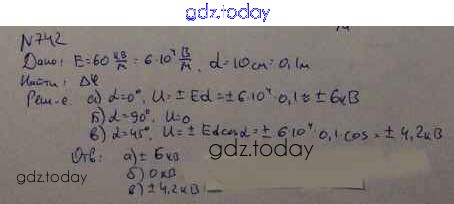 gdz.today
N742
Дано: E=60 кВ/м = 6·10⁴ В/м, d=10см=0,1м
Найти: Δφ
Реш-е. а) α=0°, U=±Ed=±6·10⁴·0,1=±6кВ
б) α=90°, U=0
в) α=45°, U=±Edcosα=±6·10⁴·0,1·cos=±4,2кВ
Отв: а)±6кВ
gdz.today
б) 0кВ
в) ±4,2кВ
gdz.today